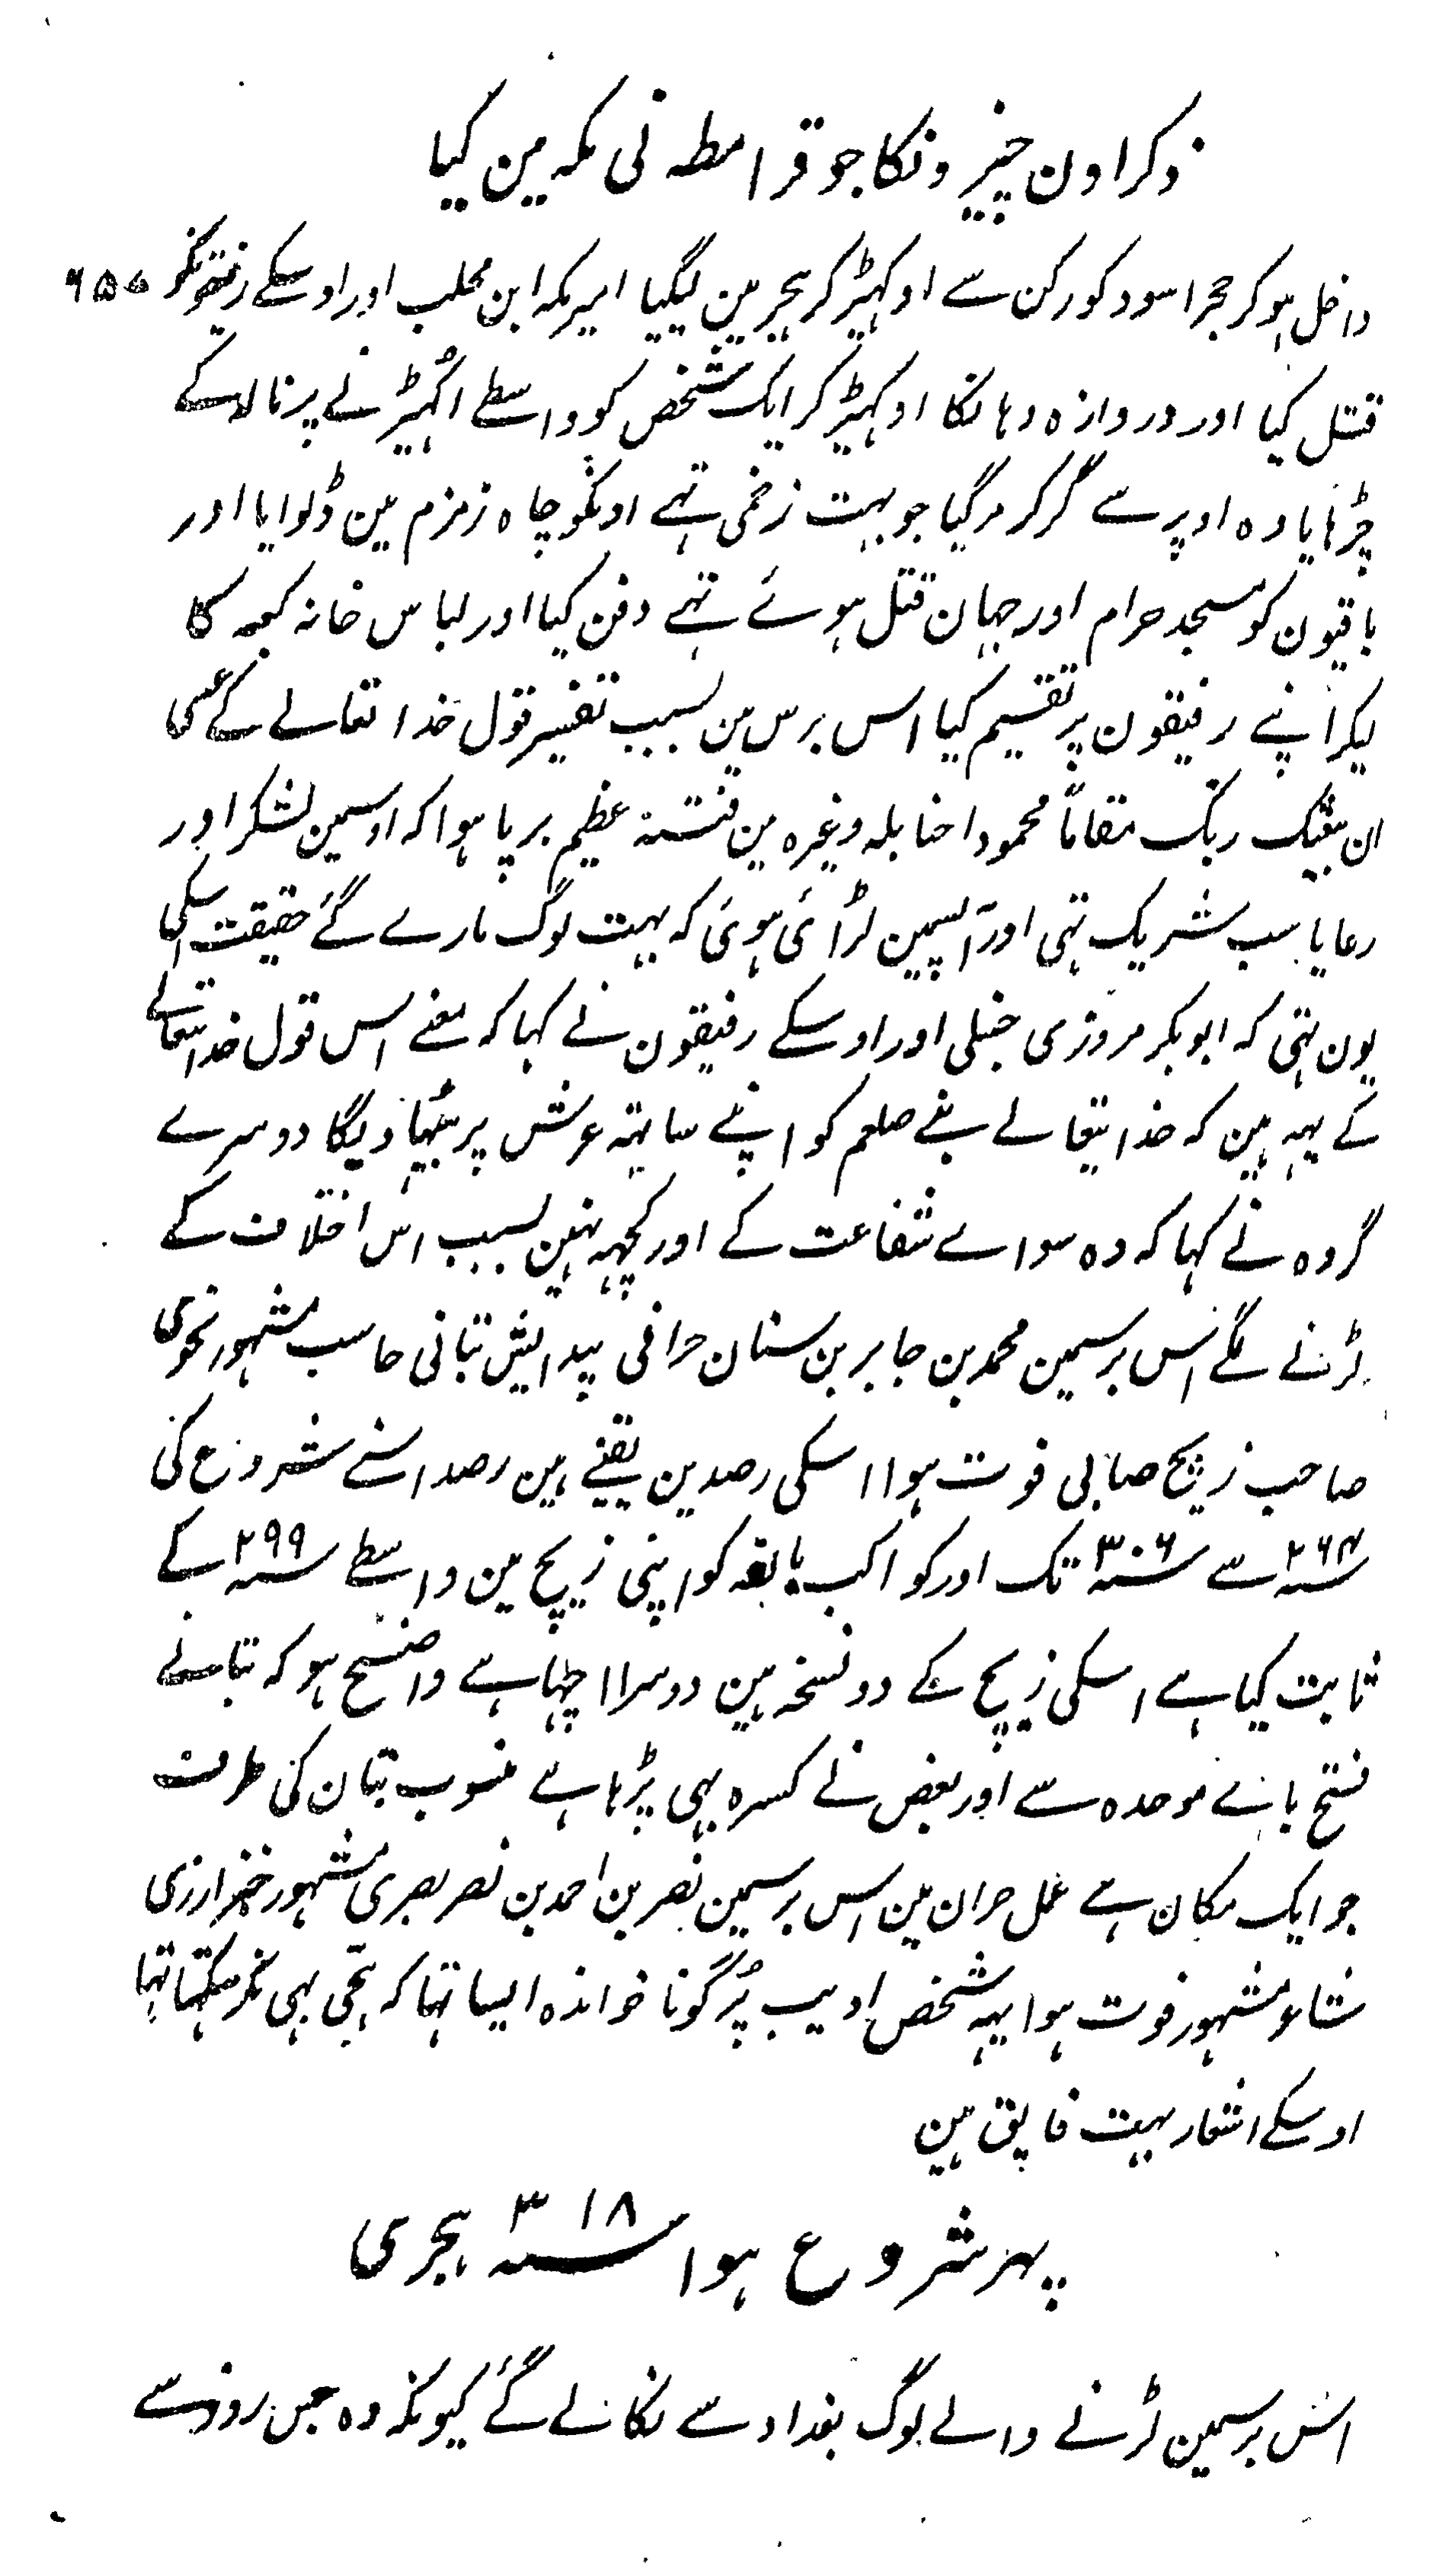 ذکر اون چیزونکا جو قرامطہ نی مکہ مین کیا
داخل ہوکر حجر اسود کو رکن سے اوکہیڑ کر ہجر مین لیگیا امیر مکہ ابن محلب اور اوسکے رفیقونکو ۶۵۰
قتل کیا اور دروازہ وہانکا اوکہیڑ کر ایک شخص کو واسطے اکہیڑنے پرنالا کے
چڑہایا وہ اوپر سے گر کر مرگیا جو بہت زخمی تہے اونکو چاہ زمزم مین ڈلوایا اور
باقیون کو مسجد حرام اور جہان قتل ہوئے تہے دفن کیا اور لباس خانہ کعبہ کا
لیکر اپنے رفیقون پر تقسیم کیا اس برس مین بسبب تفسیر قول خدا تعالے کے عسی
ان یبعثک ربک مقاماً محمودا حنابلہ وغیرہ مین فتنۂ عظیم برپا ہوا کہ اوسمین لشکر اور
رعایا سب شریک تہی اور آپسمین لڑائی ہوئی کہ بہت لوگ مارے گئے حقیقت اسکی
یون تہی کہ ابوبکر مروزی حنبلی اور اوسکے رفیقون نے کہا کہ معنے اس قول خدا تعالے
کے یہہ ہین کہ خدا تعالے نبی صلعم کو اپنے ساتہہ عرش پر بٹہا دیگا دوسرے
گروہ نے کہا کہ وہ سواے شفاعت کے اور کچہہ نہین بسبب اس اختلاف کے
لڑنے لگے اس برسمین محمد بن جابر بن سنان حرانی پیدایش بتانی حاسب مشہور نجومی
صاحب زیچ صابی فوت ہوا اسکی رصدین یقینے ہین رصد اسنے شروع کی
سنہ ۲۶۴ سے سنہ ۳۰۶ تک اور کواکب ثابتہ کو اپنی زیچ مین واسطے سنہ ۲۹۹ کے
ثابت کیا ہے اسکی زیچ کے دو نسخہ ہین دوسرا اچہا ہے واضح ہو کہ بتانے
فتح باے موحدہ سے اور بعض نے کسرہ بہی پڑہا ہے منسوب بتان کی طرف
جو ایک مکان ہے عمل حران مین اس برسمین نصر بن احمد بن نصر بصری مشہور خبزارزی
شاعر مشہور فوت ہوا یہہ شخص ادیب پُرگو ناخواندہ ایسا تہا کہ ہجی بہی نکرسکتا تہا
اوسکے اشعار بہت فایق ہین
پہر شروع ہوا سنہ ۳۱۸ ہجری
اس برسمین لڑنے والے لوگ بغداد سے نکالے گئے کیونکہ وہ جس روز سے